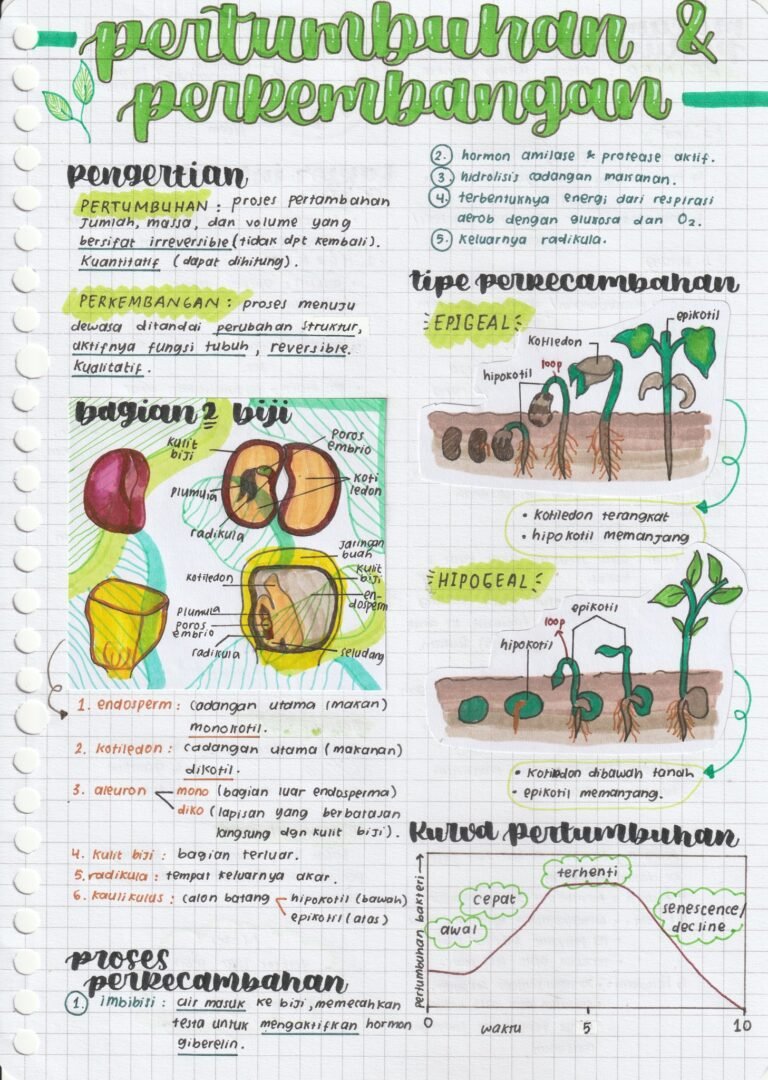 pertumbuhan &
perkembangan
pengertian
PERTUMBUHAN : proses pertambahan
Jumlah, massa, dan volume yang
bersifat irreversible (tidak dpt kembali).
Kuantitatif (dapat dihitung).
PERKEMBANGAN : proses menuju
dewasa ditandai perubahan struktur,
aktifnya fungsi tubuh, reversible.
Kualitatif.
bagian2 biji
kulit
biji
poros
embrio
plumula
koti
ledon
radikula
jaringan
buah
kulit
biji
kotiledon
en-
dosperm
plumula
poros
embrio
radikula
seludang
1. endosperm : cadangan utama (makan)
monokotil.
2. kotiledon : cadangan utama (makanan)
dikotil.
3. aleuron mono (bagian luar endosperma)
diko (lapisan yang berbatasan
langsung dgn kulit biji).
4. kulit biji : bagian terluar.
5. radikula : tempat keluarnya akar.
6. kaulikulus : (calon batang hipokotil (bawah)
epikotil (atas)
proses
perkecambahan
1. imbibisi : air masuk ke biji, memecahkan
testa untuk mengaktifkan hormon
giberelin.
2. hormon amilase & protease aktif.
3. hidrolisis cadangan makanan.
4. terbentuknya energi dari respirasi
aerob dengan glukosa dan O2.
5. keluarnya radikula.
tipe perkecambahan
EPIGEAL
epikotil
kotiledon
loop
hipokotil
• Kotiledon terangkat
• hipokotil memanjang
HIPOGEAL
epikotil
loop
hipokotil
• Kotiledon dibawah tanah
• epikotil memanjang.
Kurva pertumbuhan
pertumbuhan bakteri
terhenti
cepat
senescence/
decline.
awal
0 waktu 5 10